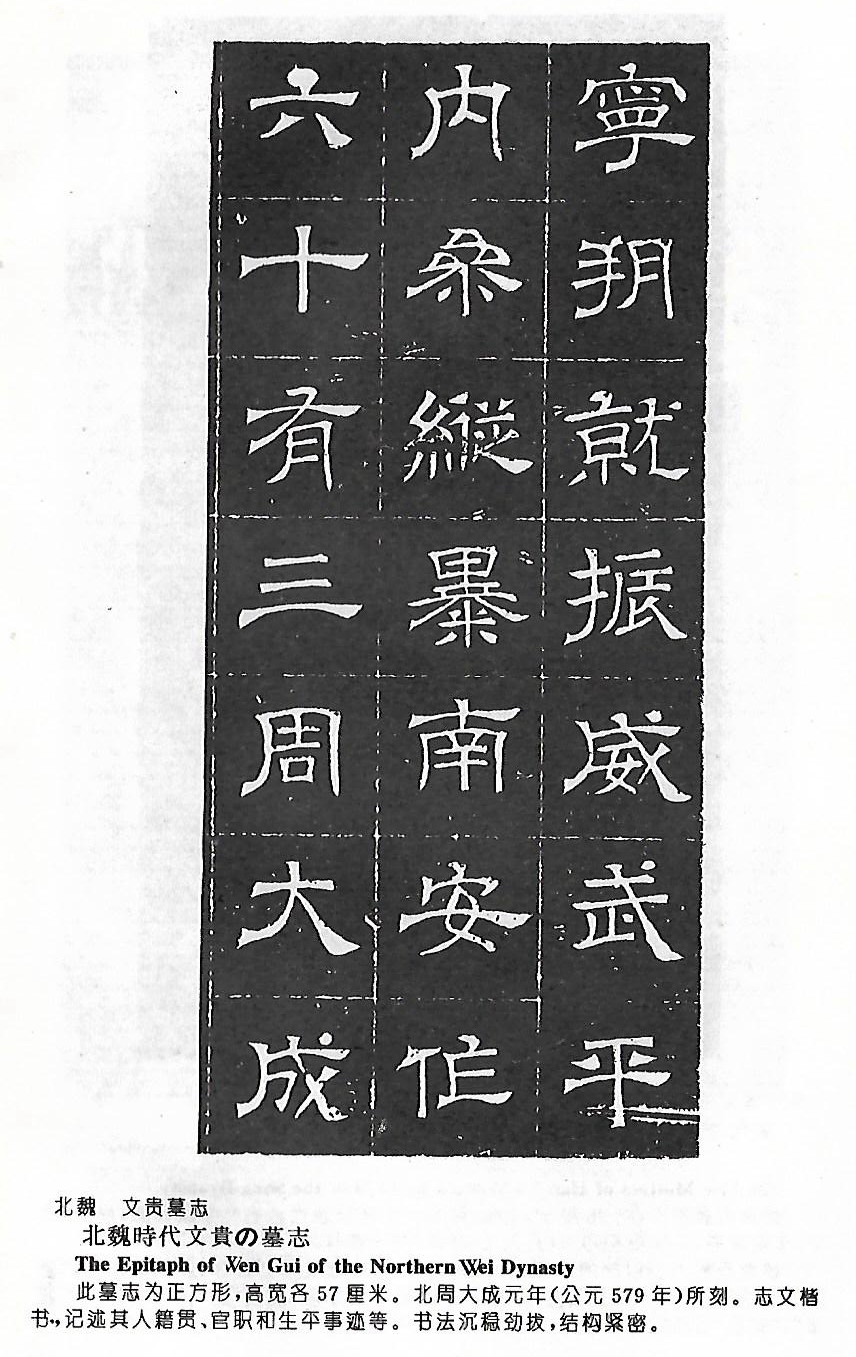 寧朔就振威武平
内叅縱暴南安作
六十有三周大成
北魏　文贵墓志
北魏時代文貴の墓志
The Epitaph of Wen Gui of the Northern Wei Dynasty
此墓志为正方形,高宽各57厘米。北周大成元年(公元579年)所刻。志文楷
书,记述其人籍贯、官职和生平事迹等。书法沉稳劲拔,结构紧密。